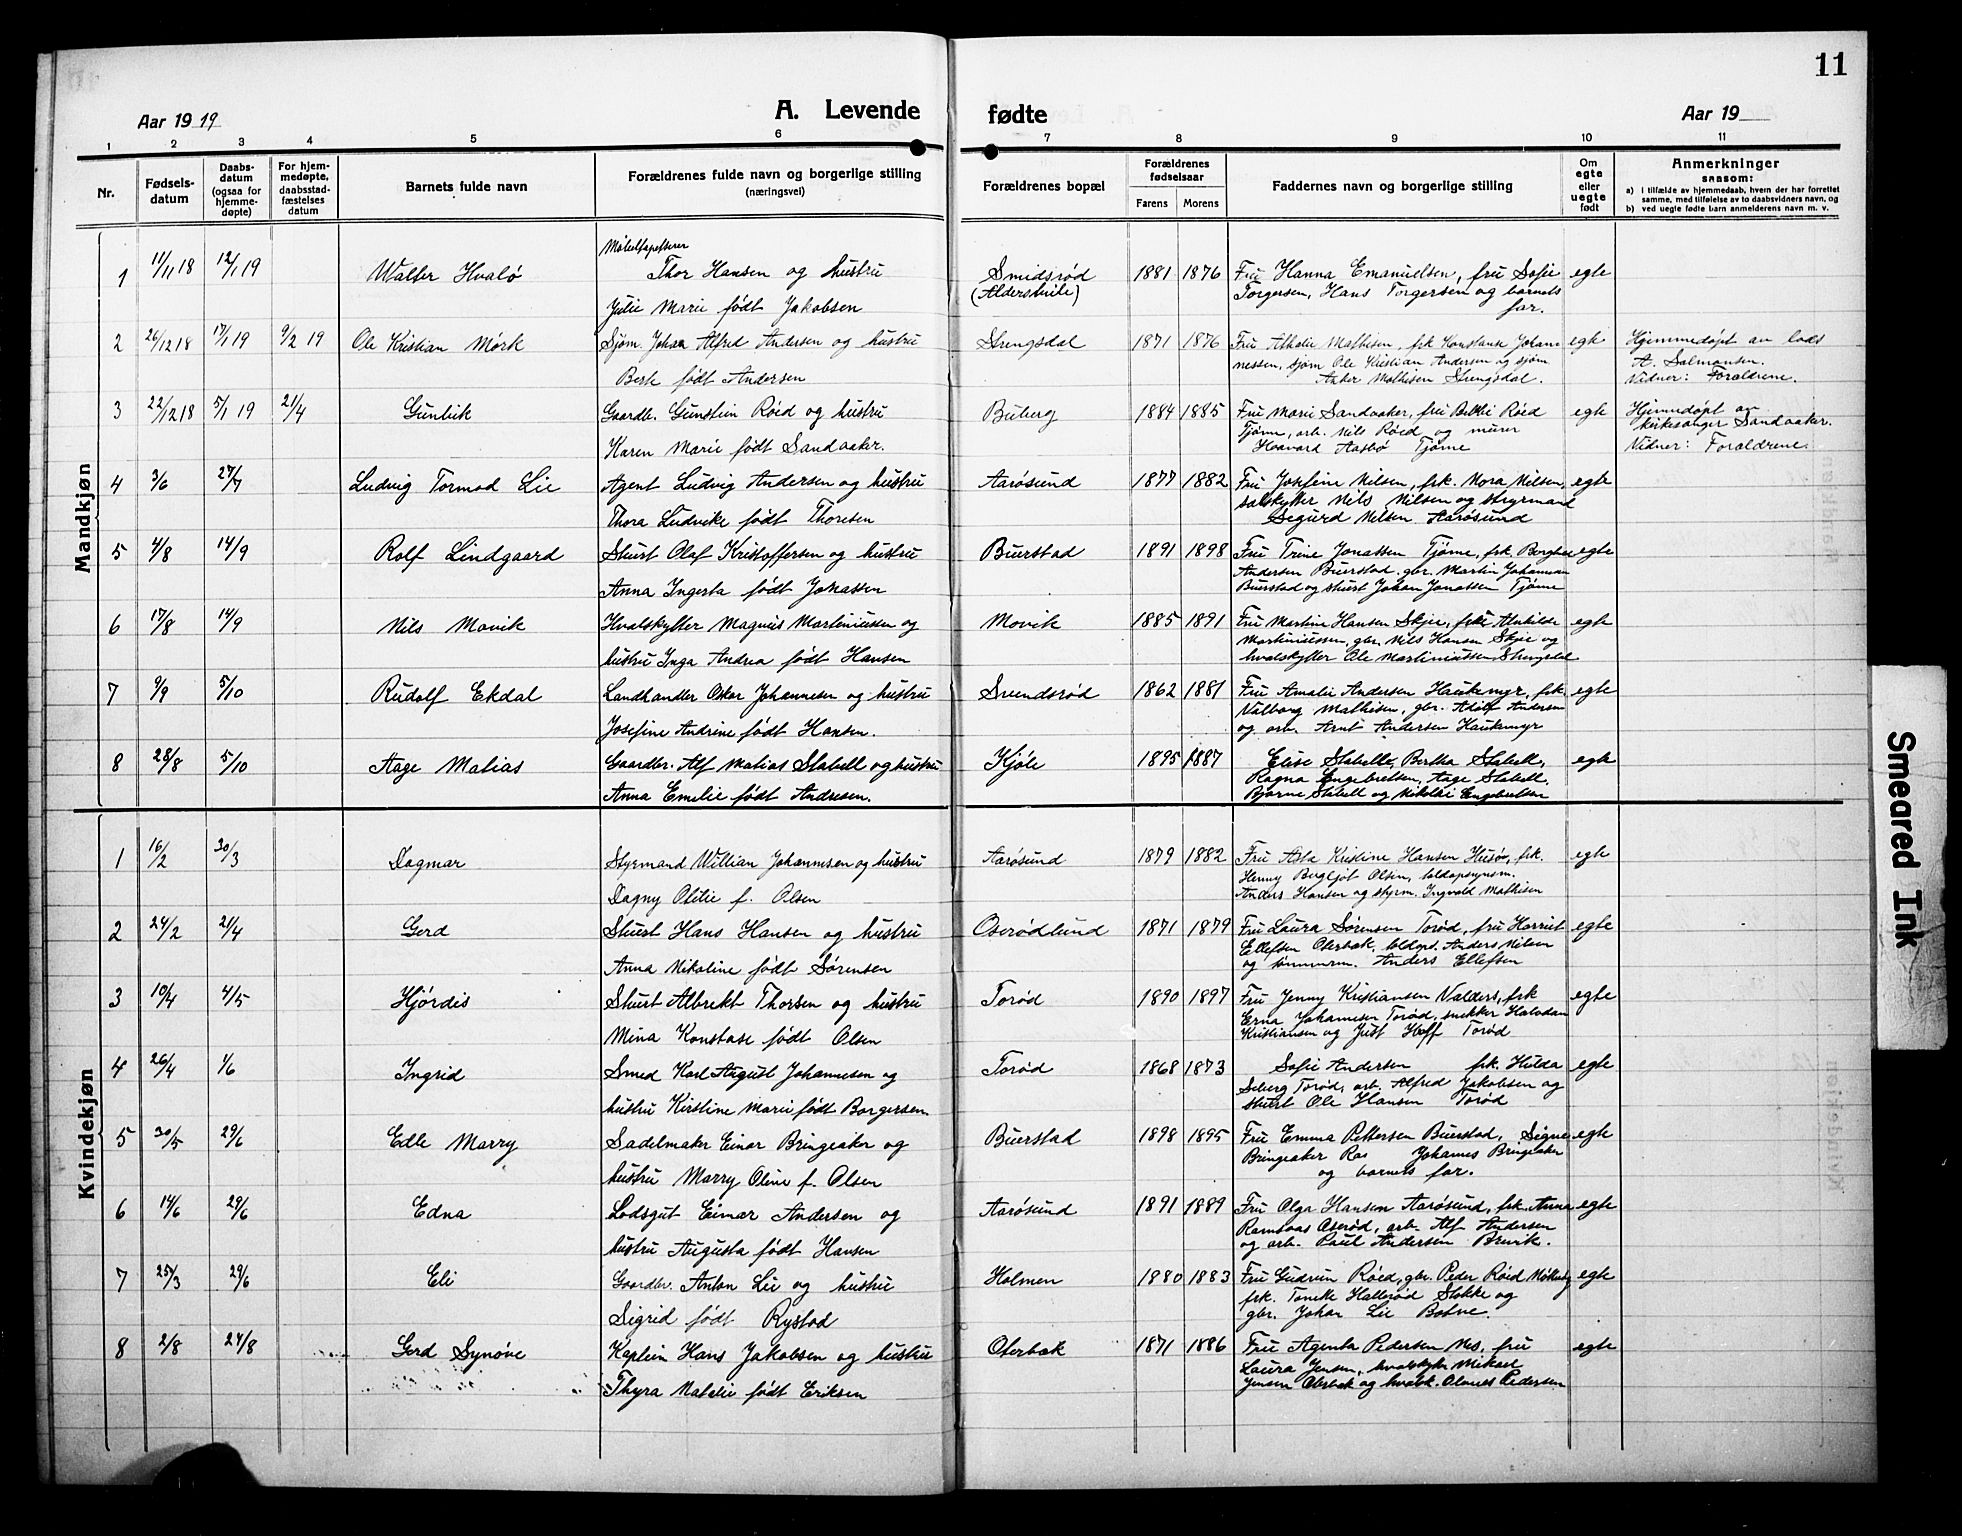 11
Aar 1919
A. Levende fødte
Aar 19
1 2 3 4 5 6 7 8 9 10 11
Nr.
Fødsels-
datum
Daabs-
datum
(ogsaa for
hjemme-
døpte)
For hjem-
medøpte,
daabsstad-
fæstelses
datum
Barnets fulde navn
Forældrenes fulde navn og borgerlige stilling
(næringsvei)
Forældrenes bopæl
Forældrenes
fødselsaar
Farens Morens
Faddernes navn og borgerlig stilling
Om
egte
eller
uegte
født
Anmerkninger
saasom:
a) i tilfælde av hjemmedaab, hvem der har forrettet
samme, med tilføielse av to daabsvidners navn, og
b) ved uegte fødte barn anmelderens navn m. v.
Mandkjøn
1 11/11 18 12/1 19 Walter Hvalø
Møbeltapetserer
Thor Hansen og hustru
Julie Marie født Jakobsen
Smidsrød
(Aldershvile)
1881 1876
Fru Hanna Emanuelsen, fru Sofie
Torgersen, Hans Torgersen og barnets
far.
egte
2 26/12 18 17/1 19 9/2 19 Ole Kristian Mørk
Sjøm. Johan Alfred Andersen og hustru
Berte født Andersen
Strengsdal
1871 1876
Fru Athalie Mathisen, frk Konstanse Johan-
nessen, sjøm Ole Kristian Andersen og sjøm
Anker Mathisen Strengsdal.
egte
Hjemmedøpt av lods
A. Salmonsen.
Vidner: Forældrene.
3 22/12 18 5/1 19 21/4 Gunleik
Gaardbr. Gunstein Røed og hustru
Karen Marie født Sandaaker.
Buberg
1884 1885
Fru Marie Sandaaker, fru Røed
Tjøme, arb. Nils Røed og murer
Haavard Aasbø Tjøme
egte
Hjemmedøpt av
kirkesanger Sandaaker.
Vidner: Forældrene.
4 3/6 27/7 Ludvig Tormod Lie
Agent Ludvig Andersen og hustru
Thora Ludvike født Thoresen
Aarøsund
1877 1882
Fru Josefine Nilsen, frk. Nora Nilsen,
sælskytter Nils Nilsen og styrmand
Sigurd Nilsen Aarøsund
egte
5 4/8 14/9 Rolf Lindgaard
Stuert Olaf Kristoffersen og hustru
Anna Ingerta født Jonassen
Buerstad
1891 1898
Fru Trine Jonassen Tjøme, frk. Borghild
Andersen Buerstad. gbr. Martin Johannesen
Buerstad og stuert Johan Jonassen Tjøme
egte
6 17/8 14/9 Nils Movik
Hvalskytter Magnus Martiniussen og
hustru Inga Andrea født Hansen
Movik
1885 1891
Fru Martine Hansen Skjie, fru Alvilde
Martiniussen, gbr. Nils Hansen Skjie og
hvalskytter Ole Martiniussen Strengsdal
egte
7 9/9 5/10 Rudolf Ekdal
Landhandler Oskar Johannesen og hustru
Josefine Andrine født Hansen.
Svendsrød
1862 1881
Fru Amalie Andersen Haukemyr, frk.
Valborg Mathisen, gbr. Adolf Andersen
og arb. Arnt Andersen Haukemyr
egte
8 28/8 5/10 Aage Matias
Gaardbr. Alf Matias Stabell og hustru
Anna Emilie født Andresen.
Kjøle
1895 1887
Elise Stabell, Bertha Stabell,
Ragna Engebretsen, Aage Stabell,
Bjarne Stabell og Nikolai Engebretsen
egte
Kvindekjøn
1 16/2 30/3 Dagmar
Styrmand Willian Johannesen og hustru
Dagny Otilie f. Olsen
Aarøsund
1879 1882
Fru Asta Kristine Hansen Husøy, frk.
Henny Bergljot Olsen, toldopsynsm.
Anders Hansen og styrm. Ingvald Mathisen
egte
2 24/2 21/4 Gerd
Stuert Hans Hansen og hustru
Anna Nikoline født Sørensen
Oserødlund
1871 1879
Fru Laura Sørensen Torød, fru Harriet
Ellefsen Oterbæk, toldops. Anders Nilsen
og tømmerm. Anders Ellefsen
egte
3 10/4 4/5 Hjørdis
Stuert Albrekt Thorsen og hustru
Mina Konstase født Olsen
Torød
1890 1897
Fru Jenny Kristiansen Valders, frk
Erna Johannesen Torød, snekker Halvdan
Kristiansen og Just Hoff Torød
egte
4 26/4 1/6 Ingrid
Smed Karl August Johannesen og
hustru Kirstine Marie født Borgersen.
Torød
1868 1873
Sofie Andersen frk. Hulda
Seberg Torød, arb. Alfred Jakobsen og
stuert Ole Hansen Torød
egte
5 30/5 29/6 Edle Marry
Sadelmaker Einar Bringeaker og
hustru Marry Oline f. Olsen
Buerstad
1898 1895
Fru Emma Pettersen Buerstad, Signe
Bringeaker Ras Johannes Bringeaker
og barnets far.
egte
6 14/6 29/6 Edna
Lodsgut Einar Andersen og
hustru Augusta født Hansen
Aarøsund
1891 1889
Fru Olga Hansen Aarøsund, frk. Anna
Ramsaas Oserød, arb. Alf Andersen
og arb. Paul Andersen Bruvik.
egte
7 25/3 29/6 Eli
Gaardbr. Anton Lie og hustru
Sigrid født Rystad
Holmen
1880 1883
Fru Gudrun Røed, gbr. Peder Røed
frk. Tomette Hallerød Stokke og
gbr. Johan Lie Botne.
egte
8 2/8 24/8 Gerd Synøve
Kaptein Hans Jakobsen og hustru
Thyra Natalie født Eriksen
Oterbæk
1871 1886
Fru Agenta Pedersen Nes, fru
Laura Jensen, hvalskytter Mikael
Jensen Oterbæk og hvalsk. Olaves Pedersen
egte
Smeared Ink